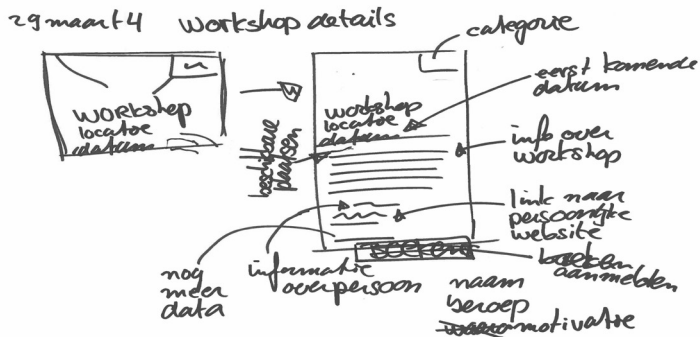 29 maart 4 workshop details
categorie
workshop
locatie
datum
workshop
locatie
datum
eerst komende
datum
beschikbare
plaatsen
info over
workshop
link naar
persoonlijke
website
boeken
boeken
aanmelden
nog
meer
data
informatie
over persoon
naam
beroep
motivatie